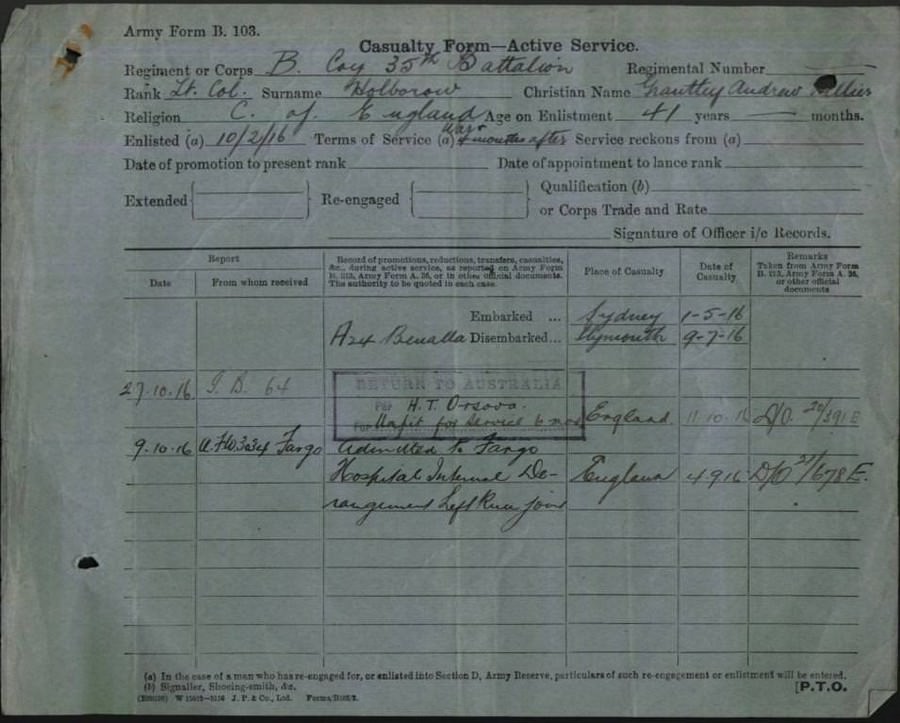 Army Form B. 103.
Casualty Form—Active Service.
Regiment or Corps B. Coy 35th Battalion Regimental Number
Rank Lt. Col. Surname Holborow Christian Name Grantley Andrew
Religion C. of England Age on Enlistment 41 years — months.
Enlisted (a) 10/2/16 Terms of Service (a) War + 4 months after Service reckons from (a)
Date of promotion to present rank Date of appointment to lance rank
Extended Re-engaged Qualification (b)
or Corps Trade and Rate
Signature of Officer i/c Records.
Report
Date
From whom received
Record of promotions, reductions, transfers, casualties,
&c., during active service, as reported on Army Form
B. 213, Army Form A. 36, or in other official documents.
The authority to be quoted in each case.
Place of Casualty
Date of
Casualty
Remarks
Taken from Army Form
B. 213, Army Form A. 36,
or other official
documents
Embarked ... Sydney 1-5-16
A24 Benalla Disembarked... Plymouth 9-7-16
RETURN TO AUSTRALIA
27.10.16 64
Per H.T. Orsova.
For Unfit for Service 6 mos England 11.10.16 D/O. 20/391 E
9.10.16 Fargo Admitted to Fargo
Hospital Internal De- England 4 9 16 D/O 21/678 E.
rangement Left Knee joint
(a) In the case of a man who has re-engaged for, or enlisted into Section D, Army Reserve, particulars of such re-engagement or enlistment will be entered.
(b) Signaller, Shoeing-smith, &c.
[P.T.O.
J. P. & Co., Ltd.